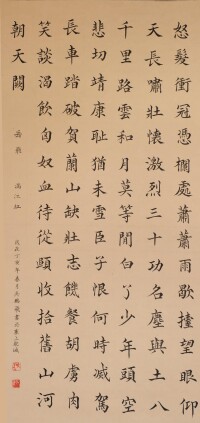 怒髮衝冠憑欄處蕭蕭雨歇擡望眼仰
天長嘯壯懷激烈三十功名塵與土八
千里路雲和月莫等閒白了少年頭空
悲切靖康耻猶未雪臣子恨何時滅駕
長車踏破賀蘭山缺壯志飢餐胡虜肉
笑談渴飲匈奴血待從頭收拾舊山河
朝天闕
岳飛 滿江紅